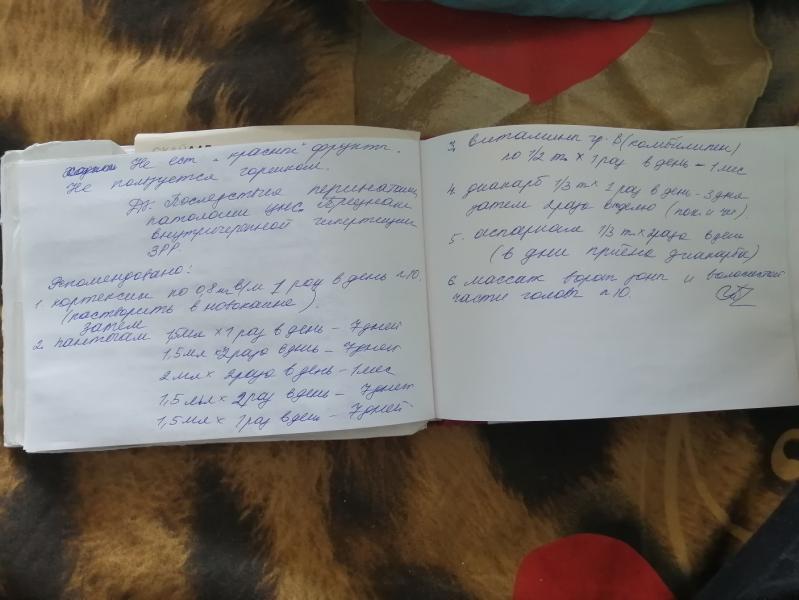 Не ест "красной" фрукты.
Не пользуется горшком.
Дз: Последствия перинатальн
патологии цнс.
внутричерепной гипертензии
ЗРР
Рекомендовано:
1. кортексин по 0,8 мл в/м 1 раз в день n10.
(растворить в новокаине)
затем
2. пантогам 1,5мл х 1 раз в день – 7 дней
1,5 мл х 2 раза в день – 7 дней
2 мл х 2 раза в день – 1 мес
1,5 мл х 2 раз в день – 7 дней
1,5 мл х 1 раз в день – 7 дней
3. витамины гр. В (комбилипен)
по 1/2 т х 1 раз в день – 1 мес
4. диакарб 1/3 т х 1 раз в день – 3 дня
затем 2 раза в неделю (пон. и чт)
5. аспаркам 1/3 т х 2 раза в день
(в дни приёма диакарба)
6. массаж ворот зоны и волосистой
части головы n10.